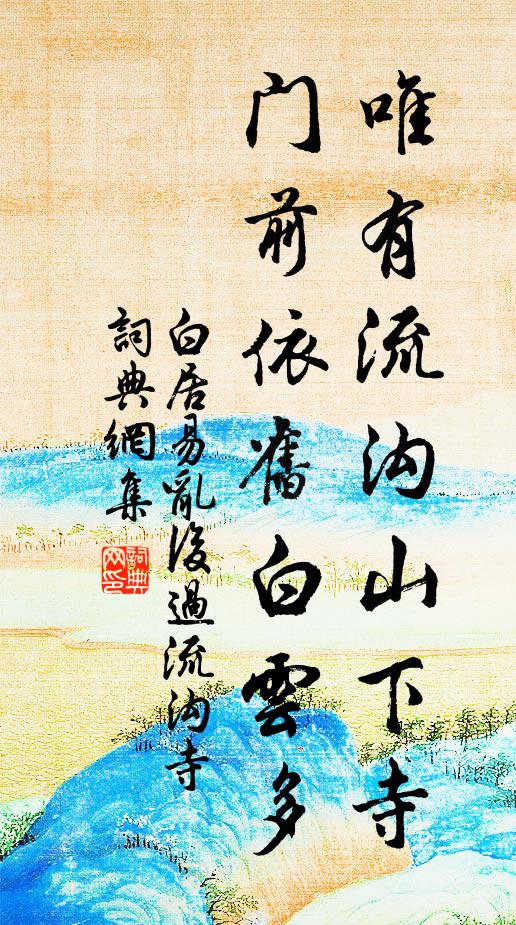 唯有流沟山下寺
门前依舊白雲多
白居易亂後過流沟寺
詞典網集
詞典网印